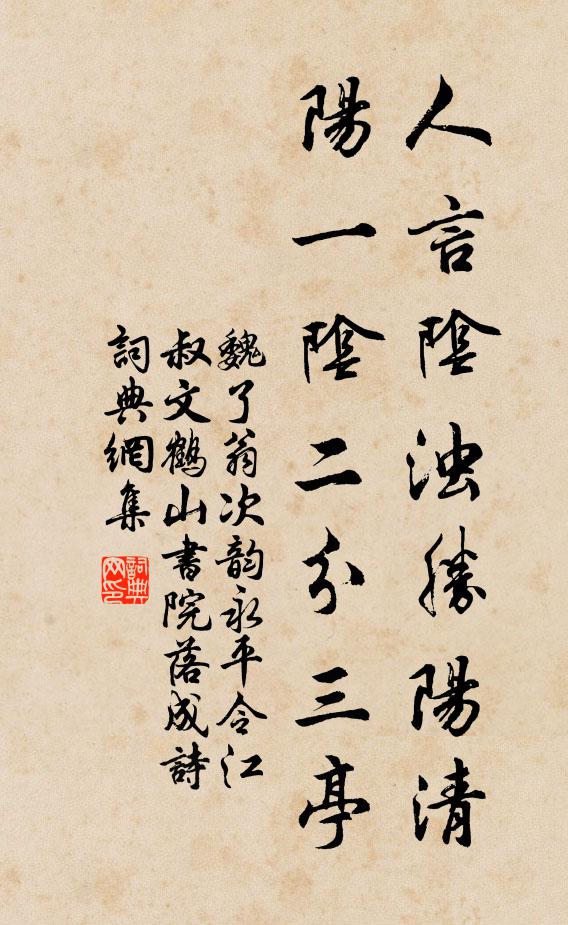 人言陰浊勝陽清
陽一陰二分三亭
魏了翁次韵永平令江
叔文鶴山書院落成詩
詞典網集
詞典网印